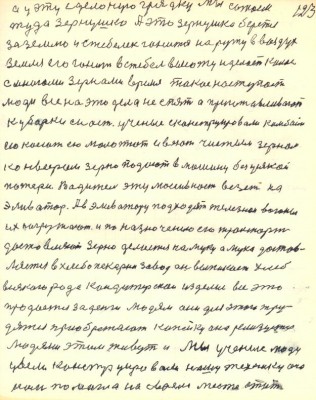 а у эту сделоную грядку мы сажаем 1283
туда зернушко А это зернушко берется
за землю и стебелек гонится на ружу в воздух
земля его гонит в стебел высоту и делает колос
с многоми зернами время такое наступает
люди все на это дела не спят а приготавливают
к уборки снаст. ученые сконструировали комбайн
его косит его молотит и вяот чистым зерном
конвеером зерно подают в машину без укакой
потери. Водител эту масивност везет на
эливатор. А в эливатору подходят железно вагоны
их загружают и по назначению его транспорт
доставляют Зерно делается на муку а мука достав-
ляется в хлебопекарни завод он выпекает хлеб
всякого рода кондитерская изделие все это
продается за денги людям они для этого тру-
дятся приобретают копейку она реализует
людями этим живут и мы ученые люди
умом конструировали нашу технику она
нам помагла на своем месте